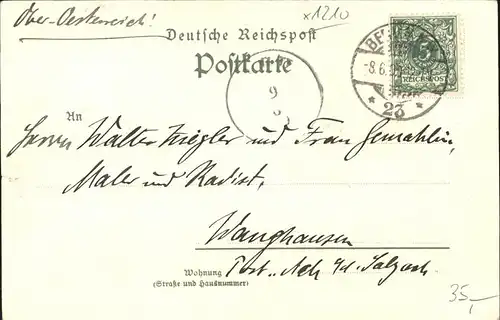 Ober-Oesterreich!
x1210
Deutsche Reichspost
Postkarte
BERLIN
-8.6.
* 23 *
5
REICHSPOST
9
6
An
Herrn Walter Ziegler und Frau Gemahlin,
Maler und Radist,
Wanghausen
Wohnung Post Ach a/d. Salzach.
(Straße und Hausnummer)
35,-